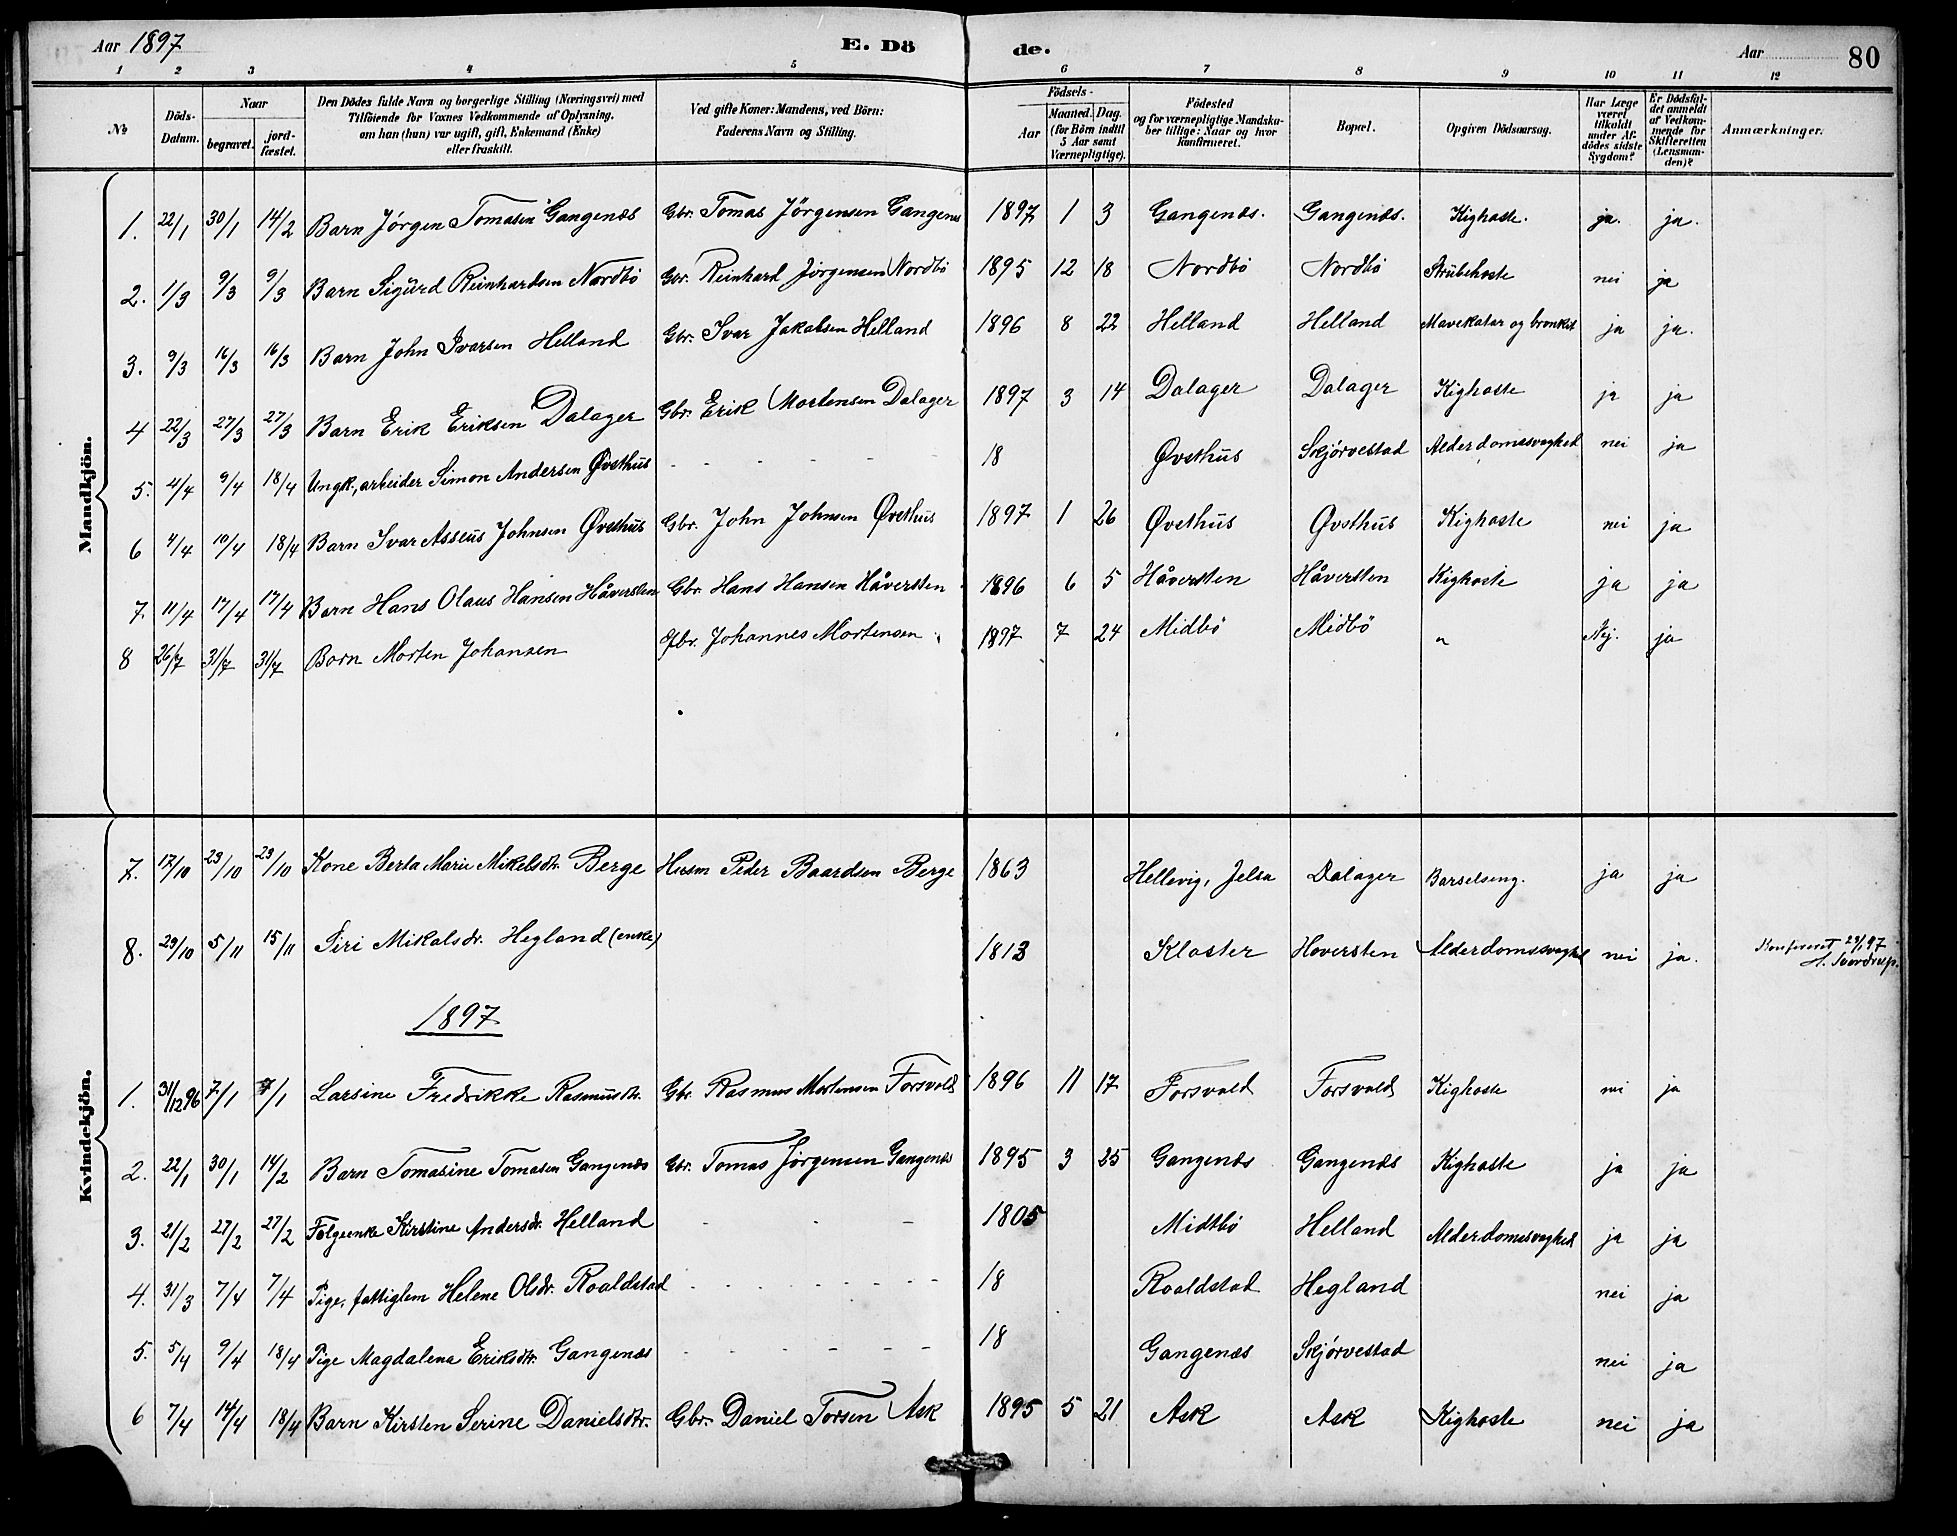 Aar 1897 E. Dö de. Aar 80
1 2 3 4 5 6 7 8 9 10 11 12
№ Döds-Datum. Naar begravet. jordfæstet. Den Dödes fulde Navn og borgerlige Stilling (Næringsvei) med Tilföiende for Voxnes Vedkommende af Oplysning, om han (hun) var ugift, gift, Enkemand (Enke) eller fraskilt. Ved gifte Koner: Mandens, ved Börn: Faderens Navn og Stilling. Födsels- Aar Maaned. Dag. (for Börn indtil 5 Aar samt Værnepligtige). Födested og for værnepligtige Mandskaber tillige: Naar og hvor konfirmeret. Bopæl. Opgiven Dödsaarsag. Har Læge været tilkaldt under Afdödes sidste Sygdom? Er Dödsfaldet anmeldt af Vedkommende for Skifteretten (Lensmanden)? Anmærkninger.
Mandkjön.
1. 22/1 30/1 14/2 Barn Jörgen Tomasen Gangenæs Gbr. Tomas Jörgensen Gangenæs 1897 1 3 Gangenæs. Gangenæs. Kighoste. ja. ja.
2. 1/3 9/3 9/3 Barn Sigurd Reinhardsen Nordbö Gbr. Reinhard Jörgensen Nordbö 1895 12 18 Nordbö Nordbö Strübehoste nei ja
3. 9/3 16/3 16/3 Barn John Ivarsen Helland Gbr. Ivar Jakobsen Helland 1896 8 22 Helland Helland Mavekatar og bronkit ja ja.
4 22/3 27/3 27/3 Barn Erik Eriksen Dalager Gbr. Erik Mortensen Dalager 1897 3 14 Dalager Dalager Kighoste ja ja
5. 4/4 9/4 18/4 Ungk., arbeider Simon Andersen Øvsthus - - - - - 18 Øvsthus Skjörvestad Alderdomssvaghed nei ja
6 4/4 10/4 18/4 Barn Ivar Asseus Johnsen Øvsthus Gbr. John Johnsen Øvsthus 1897 1 26 Øvsthus Øvsthus Kighoste nei ja
7. 11/4 17/4 17/4 Barn Hans Olaus Hansen Håversten Gbr. Hans Hansen Håversten 1896 6 5 Håversten Håversten Kighoste ja ja
8 26/7 31/7 31/7 Barn Morten Johansen Gbr. Johannes Mortensen 1897 7 24 Midbö Midbö " Nej. ja
Kvindekjön.
7. 17/10 23/10 23/10 Kone Berta Marie Mikelsdtr. Berge Husm Peder Baardsen Berge 1863 Hellevig, Jelsa Dalager Barselseng. ja ja
8. 29/10 5/11 15/11 Siri Mikalsdr. Hegland (enke) 1813 Kloster Hoversten Alderdomssvaghed nei ja. Konfereret 29/1 97
1897
1. 31/12 96 7/1 7/1 Larsine Fredrikke Rasmusdtr. Gbr. Rasmus Mortensen Forsvold 1896 11 17 Forsvold Forsvold Kighoste nei ja
2. 22/1 30/1 14/2 Barn Tomasine Tomasen Gangenæs Gbr. Tomas Jörgensen Gangenæs 1895 3 25 Gangenæs Gangenæs Kighoste ja ja
3. 21/2 27/2 27/2 Folgeenke Kirstine Andersdr. Helland - - - 1805 Midtbö Helland Alderdomssvaghed ja ja
4. 31/3 7/4 7/4 Pige, fattiglem Helene Olsdr. Roaldstad - - - - - - - 18 Roaldstad Hegland nei ja
5. 5/4 9/4 18/4 Pige Magdalena Eriksdtr. Gangenæs - - - - - - - 18 Gangenæs Skjörvestad nei ja
6 7/4 14/4 18/4 Barn Kirsten Serine Danielsdtr. Gbr. Daniel Torsen Ask 1895 5 21 Ask Ask Kighoste nei ja